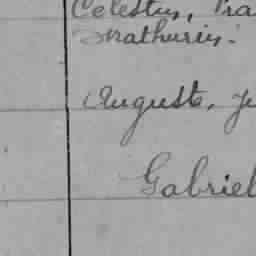 Celestin, Fra
Mathurin.
Auguste, Ju
Gabriel